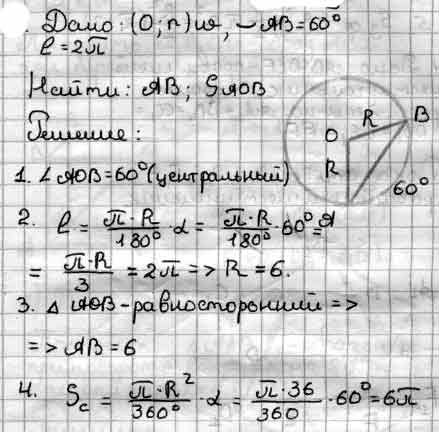 Дано: (O; r) и, ◡AB = 60°
ℓ = 2π
Найти: AB; SAOB
Решение:
O R B
R
60°
A
1. ∠ AOB = 60° (центральный)
2. ℓ = π·R/180° · α = π·R/180° · 60° =
= π·R/3 = 2π => R = 6.
3. △ AOB - равносторонний =>
=> AB = 6
4. Sc = π·R²/360° · α = π·36/360 · 60° = 6π